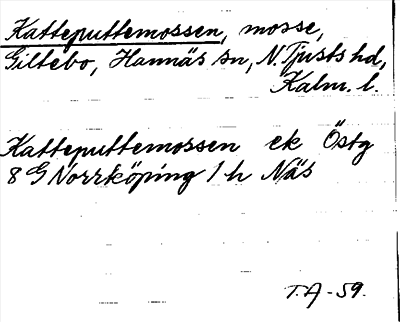 Katteputtemossen, mosse,
Giltebo, Hannäs sn, N. Tjusts hd,
Kalm. l.
Katteputtemossen ek Östg
8 G Norrköping 1 h Näs
T.A-59.